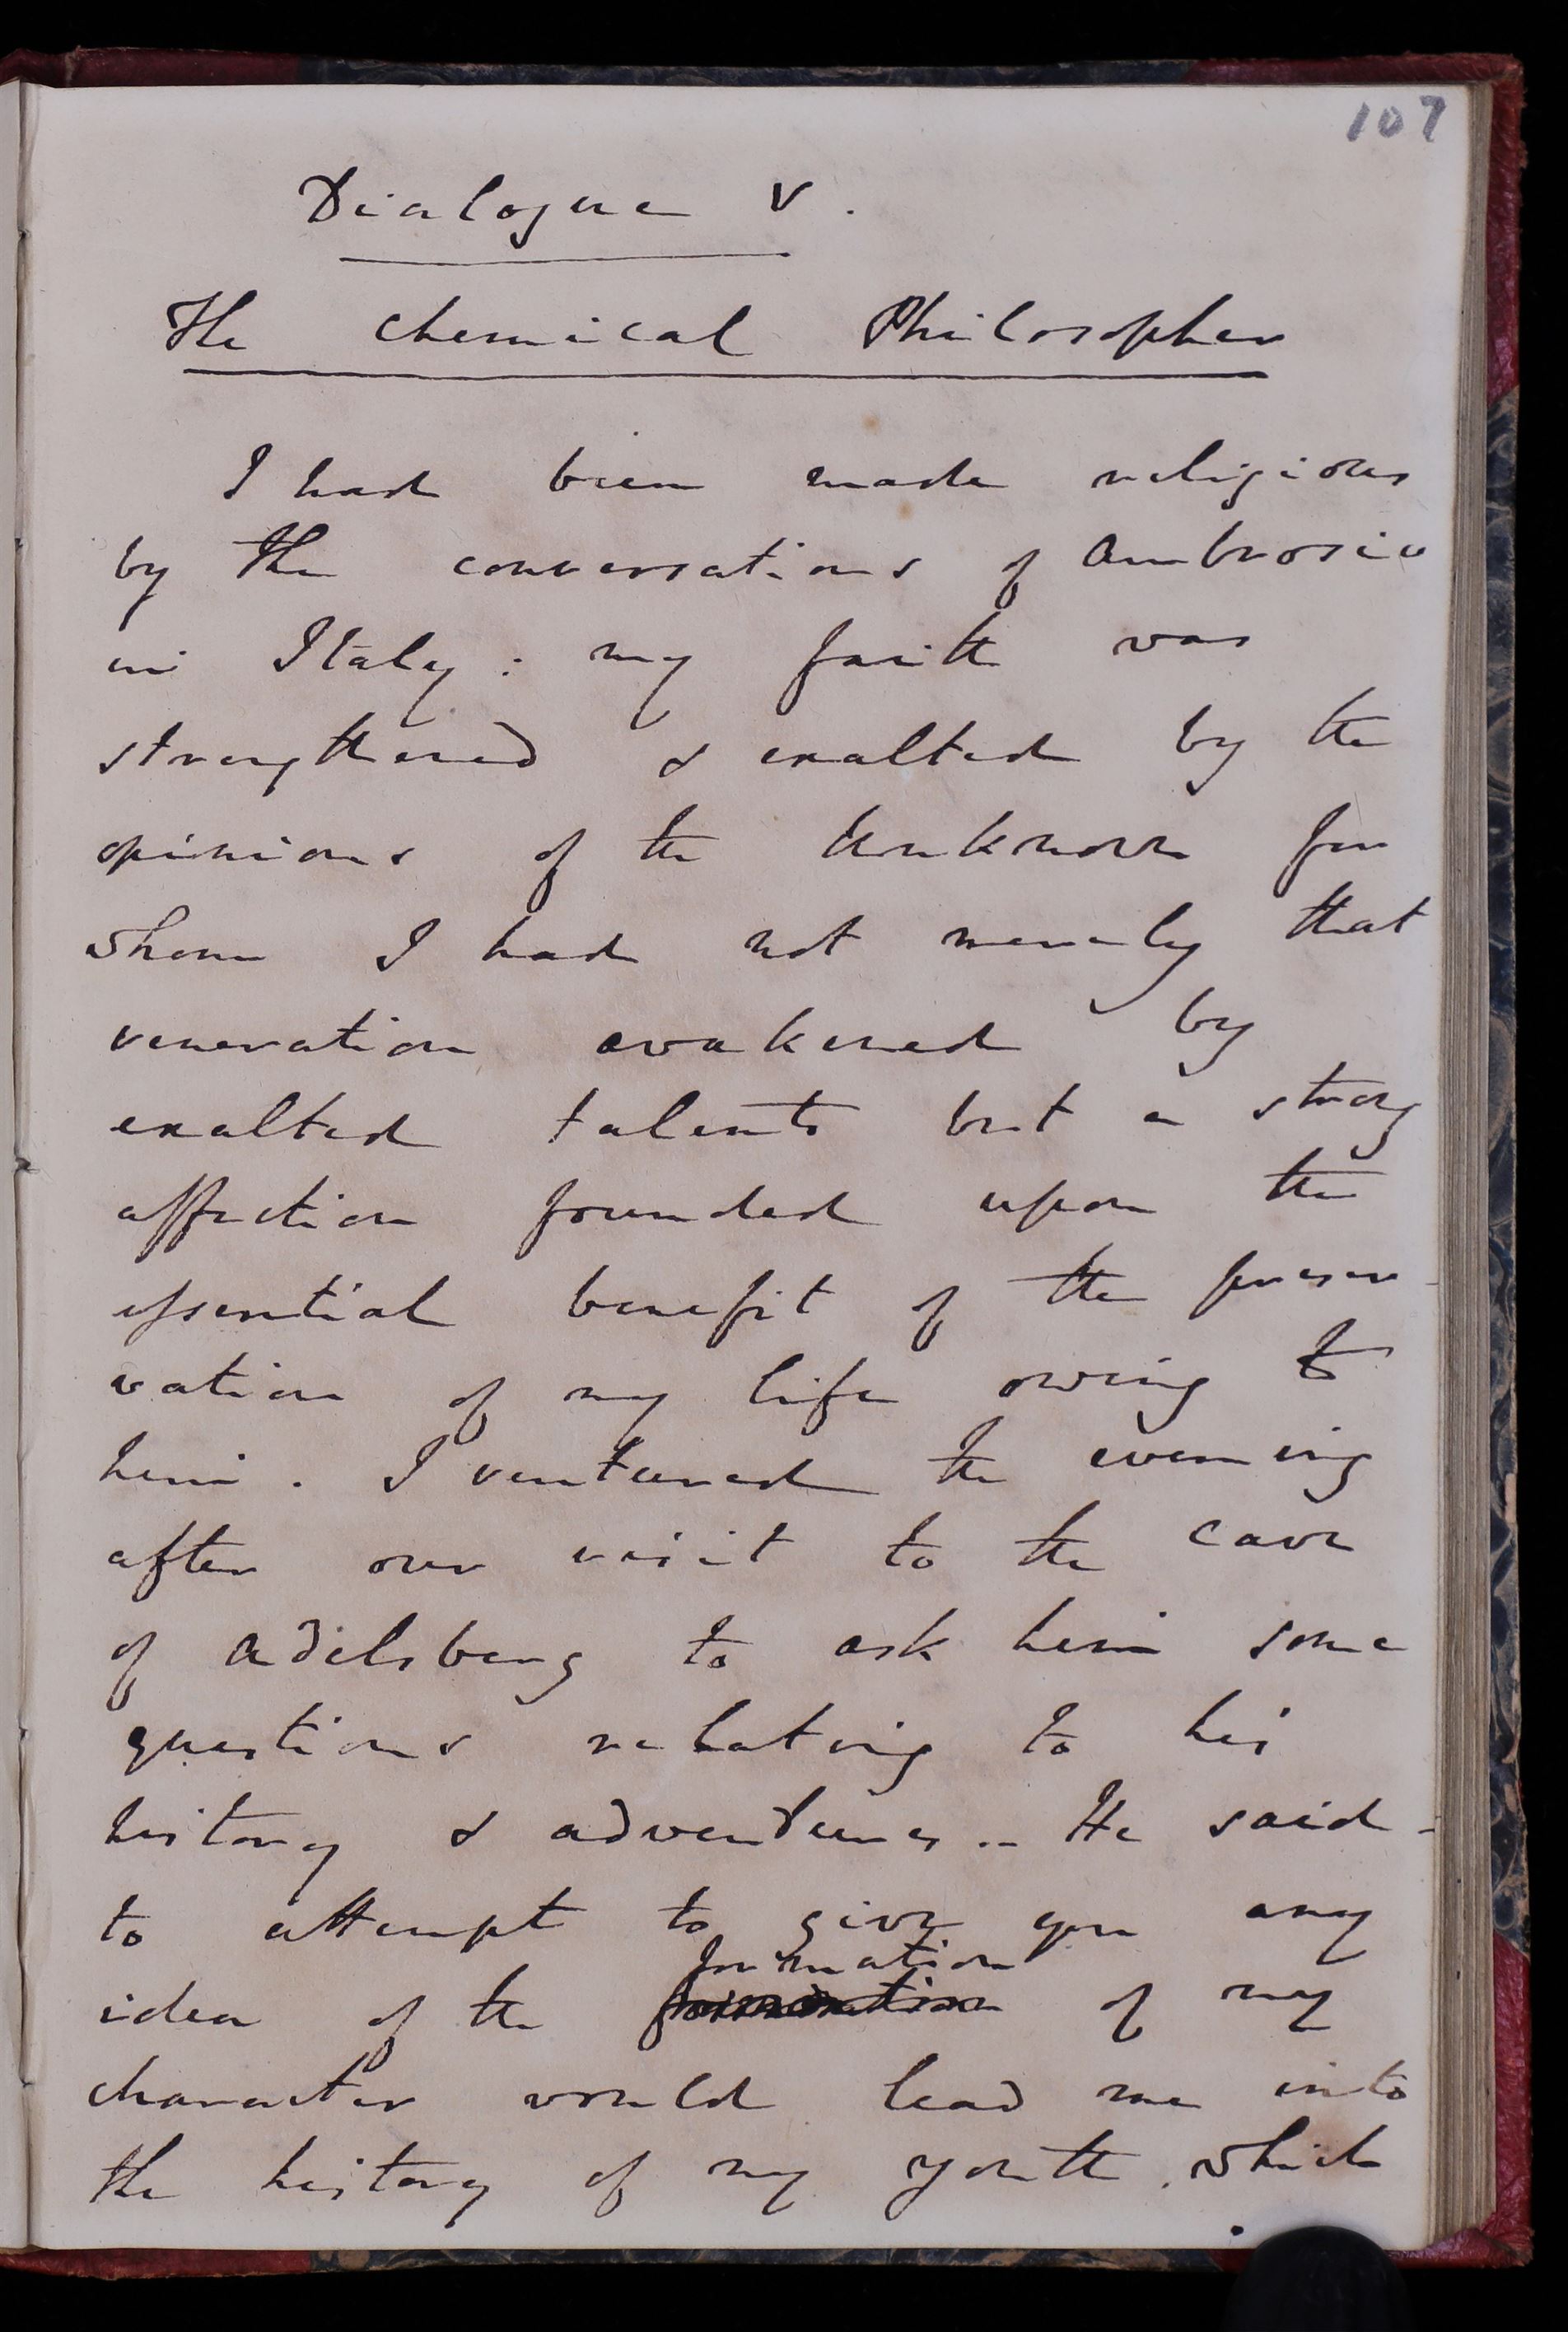 107
Dialogue V.
The Chemical Philosopher
I had been made religious
by the conversations of Ambrosio
in Italy: my faith was
strengthened & exalted by the
opinions of the Unknown for
whom I had not merely that
veneration awakened by
exalted talents but a strong
affection founded upon the
essential benefit of the preser-
vation of my life owing to
him. I ventured the evening
after our visit to the cave
of Adelsberg to ask him some
questions relating to his
history & adventures.. He said -
to attempt to give you any
formation
idea of the of my
character would lead me into
the history of my youth which